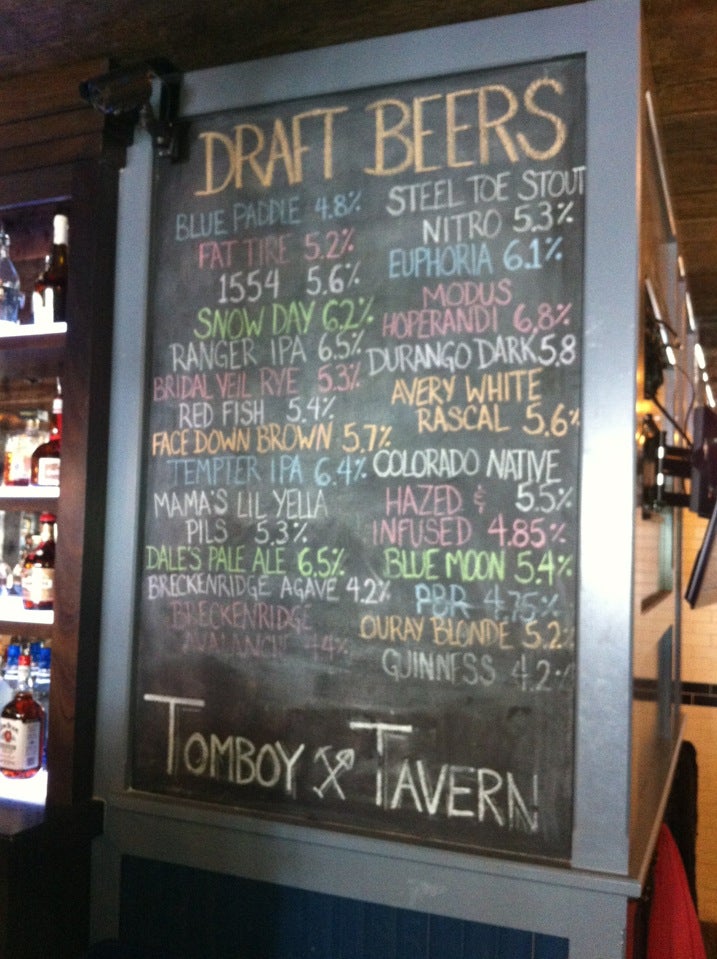 DRAFT BEERS
BLUE PADDLE 4.8%
FAT TIRE 5.2%
1554 5.6%
SNOW DAY 6.2%
RANGER IPA 6.5%
BRIDAL VEIL RYE 5.3%
RED FISH 5.4%
FACE DOWN BROWN 5.7%
TEMPTER IPA 6.4%
MAMA'S LIL YELLA
PILS 5.3%
DALE'S PALE ALE 6.5%
BRECKENRIDGE AGAVE 4.2%
BRECKENRIDGE
AVALANCHE 4.4%
STEEL TOE STOUT
NITRO 5.3%
EUPHORIA 6.1%
MODUS
HOPERANDI 6.8%
DURANGO DARK 5.8
AVERY WHITE
RASCAL 5.6%
COLORADO NATIVE
5.5%
HAZED &
INFUSED 4.85%
BLUE MOON 5.4%
PBR 4.75%
OURAY BLONDE 5.2%
GUINNESS 4.2%
TOMBOY TAVERN